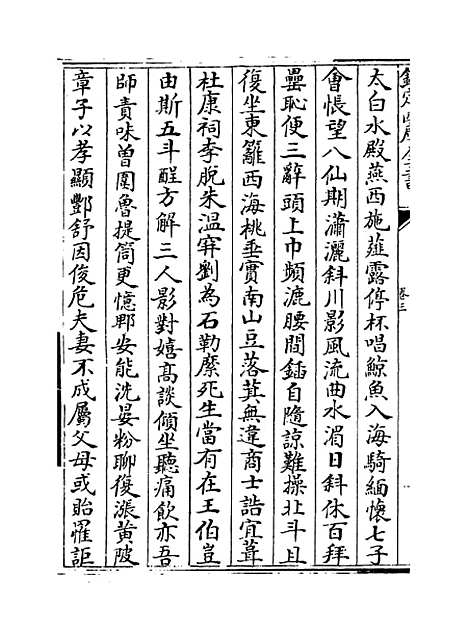 欽定四庫全書
卷三
太白水殿燕西施薤露停杯唱鯨魚入海騎緬懷七子
會悵望八仙期瀟灑斜川影風流曲水湄日斜休百拜
罍恥便三辭頭上巾頻漉腰間鍤自隨諒難操北斗且
復坐東籬西海桃垂實南山豆落萁無違商士誥宜葺
杜康祠李脫朱溫穽劉為石勒縻死生當有在王伯豈
由斯五斗酲方解三人影對嬉高談傾坐聽痛飲亦吾
師責味曽圍魯提筒更憶郫安能洗晏粉聊復漲黄陂
章子以孝顯酆舒因俊危夫妻不成屬父母或貽罹詎